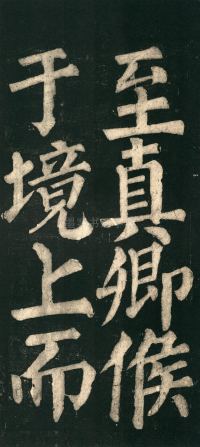 至真卿候
于境上而